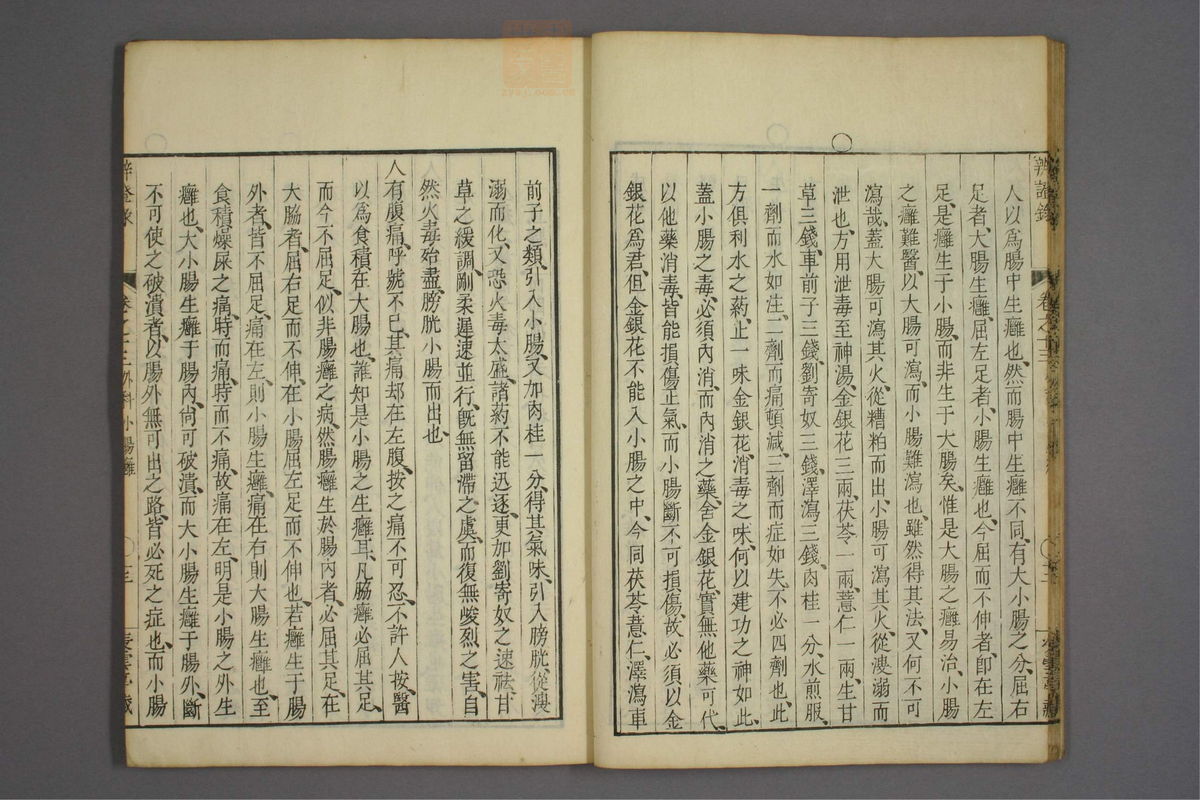 人以爲腸中生癰也、然而腸中生癰不同、有大小腸之分、屈右
足者、大腸生癰、屈左足者、小腸生癰也、今屈而不伸者、卽在左
足、是癰生于小腸、而非生于大腸矣、惟是大腸之癰易治、小腸
之癰難醫、以大腸可瀉、而小腸難瀉也、雖然得其法、又何不可
瀉哉、蓋大腸可瀉其火、從糟粕而出、小腸可瀉其火、從溲溺而
泄也、方用泄毒至神湯、金銀花三兩、茯苓一兩、薏仁一兩、生甘
草三錢、車前子三錢、劉寄奴三錢、澤瀉三錢、肉桂一分、水煎服、
一劑而水如注、二劑而痛頓減、三劑而症如失、不必四劑也、此
方俱利水之葯、止一味金銀花消毒之味、何以建功之神如此、
蓋小腸之毒、必須內消、而內消之藥、舍金銀花、實無他藥可代、
以他藥消毒、皆能損傷正氣、而小腸斷不可損傷、故必須以金
銀花爲君、但金銀花不能入小腸之中、今同茯苓、薏仁、澤瀉、車
前子之類、引入小腸、又加肉桂一分、得其氣味、引入膀胱、從溲
溺而化、又恐火毒太盛、諸葯不能迅逐、更加劉寄奴之速祛、甘
草之緩調、剛柔遲速並行、旣無留滯之虞、而復無峻烈之害、自
然火毒殆盡、膀胱小腸而出也、
人有腹痛、呼號不已、其痛却在左腹、按之痛不可忍、不許人按、醫
以爲食積在大腸也、誰知是小腸之生癰耳、凡腸癰必屈其足、
而今不屈足、似非腸癰之病、然腸癰生於腸內者、必屈其足、在
大腸者、屈右足而不伸、在小腸屈左足而不伸也、若癰生于腸
外者、皆不屈足、痛在左、則小腸生癰、痛在右則大腸生癰也、至
食積燥屎之痛、時而痛、時而不痛、故痛在左、明是小腸之外生
癰也、大小腸生癰于腸內、尙可破潰、而大小腸生癰于腸外、斷
不可使之破潰者、以腸外無可出之路、皆必死之症也、而小腸
卷之十三外科小腸癰